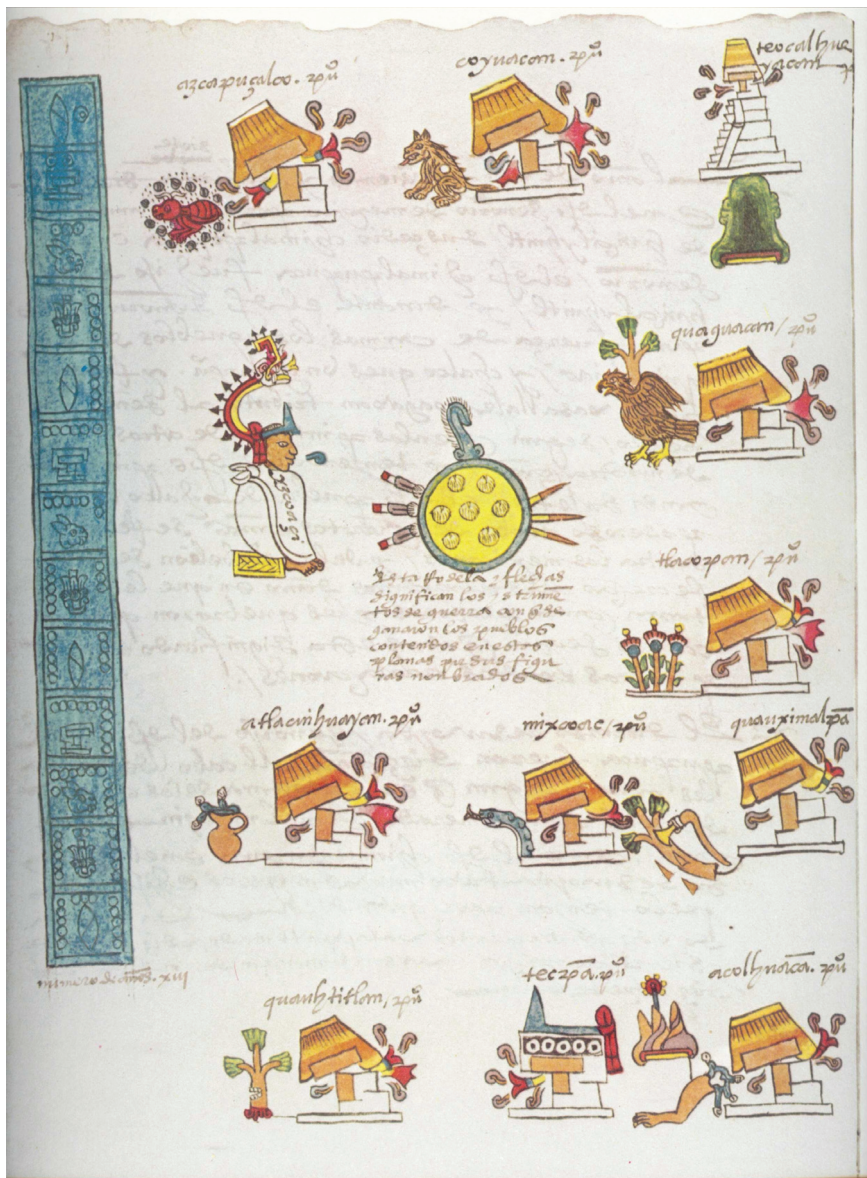 azcapuçalco . puº
coyuacan . puº
teocalhue
yacan puº
quaguacan / puº
yzcoaçi
Esta Rodela y flechas
significan los ystrumē
tos de guerra con q̄ se
ganaron los pueblos
contenidos en estas
planas que sus figu
ras nonbrados
tlacopan / puº
atlacuihuayan . puº
mixcoac / puº
quauximalpā
numero de años . xiii
quauhtitlan / puº
tecpā . puº
acolhuacā . puº